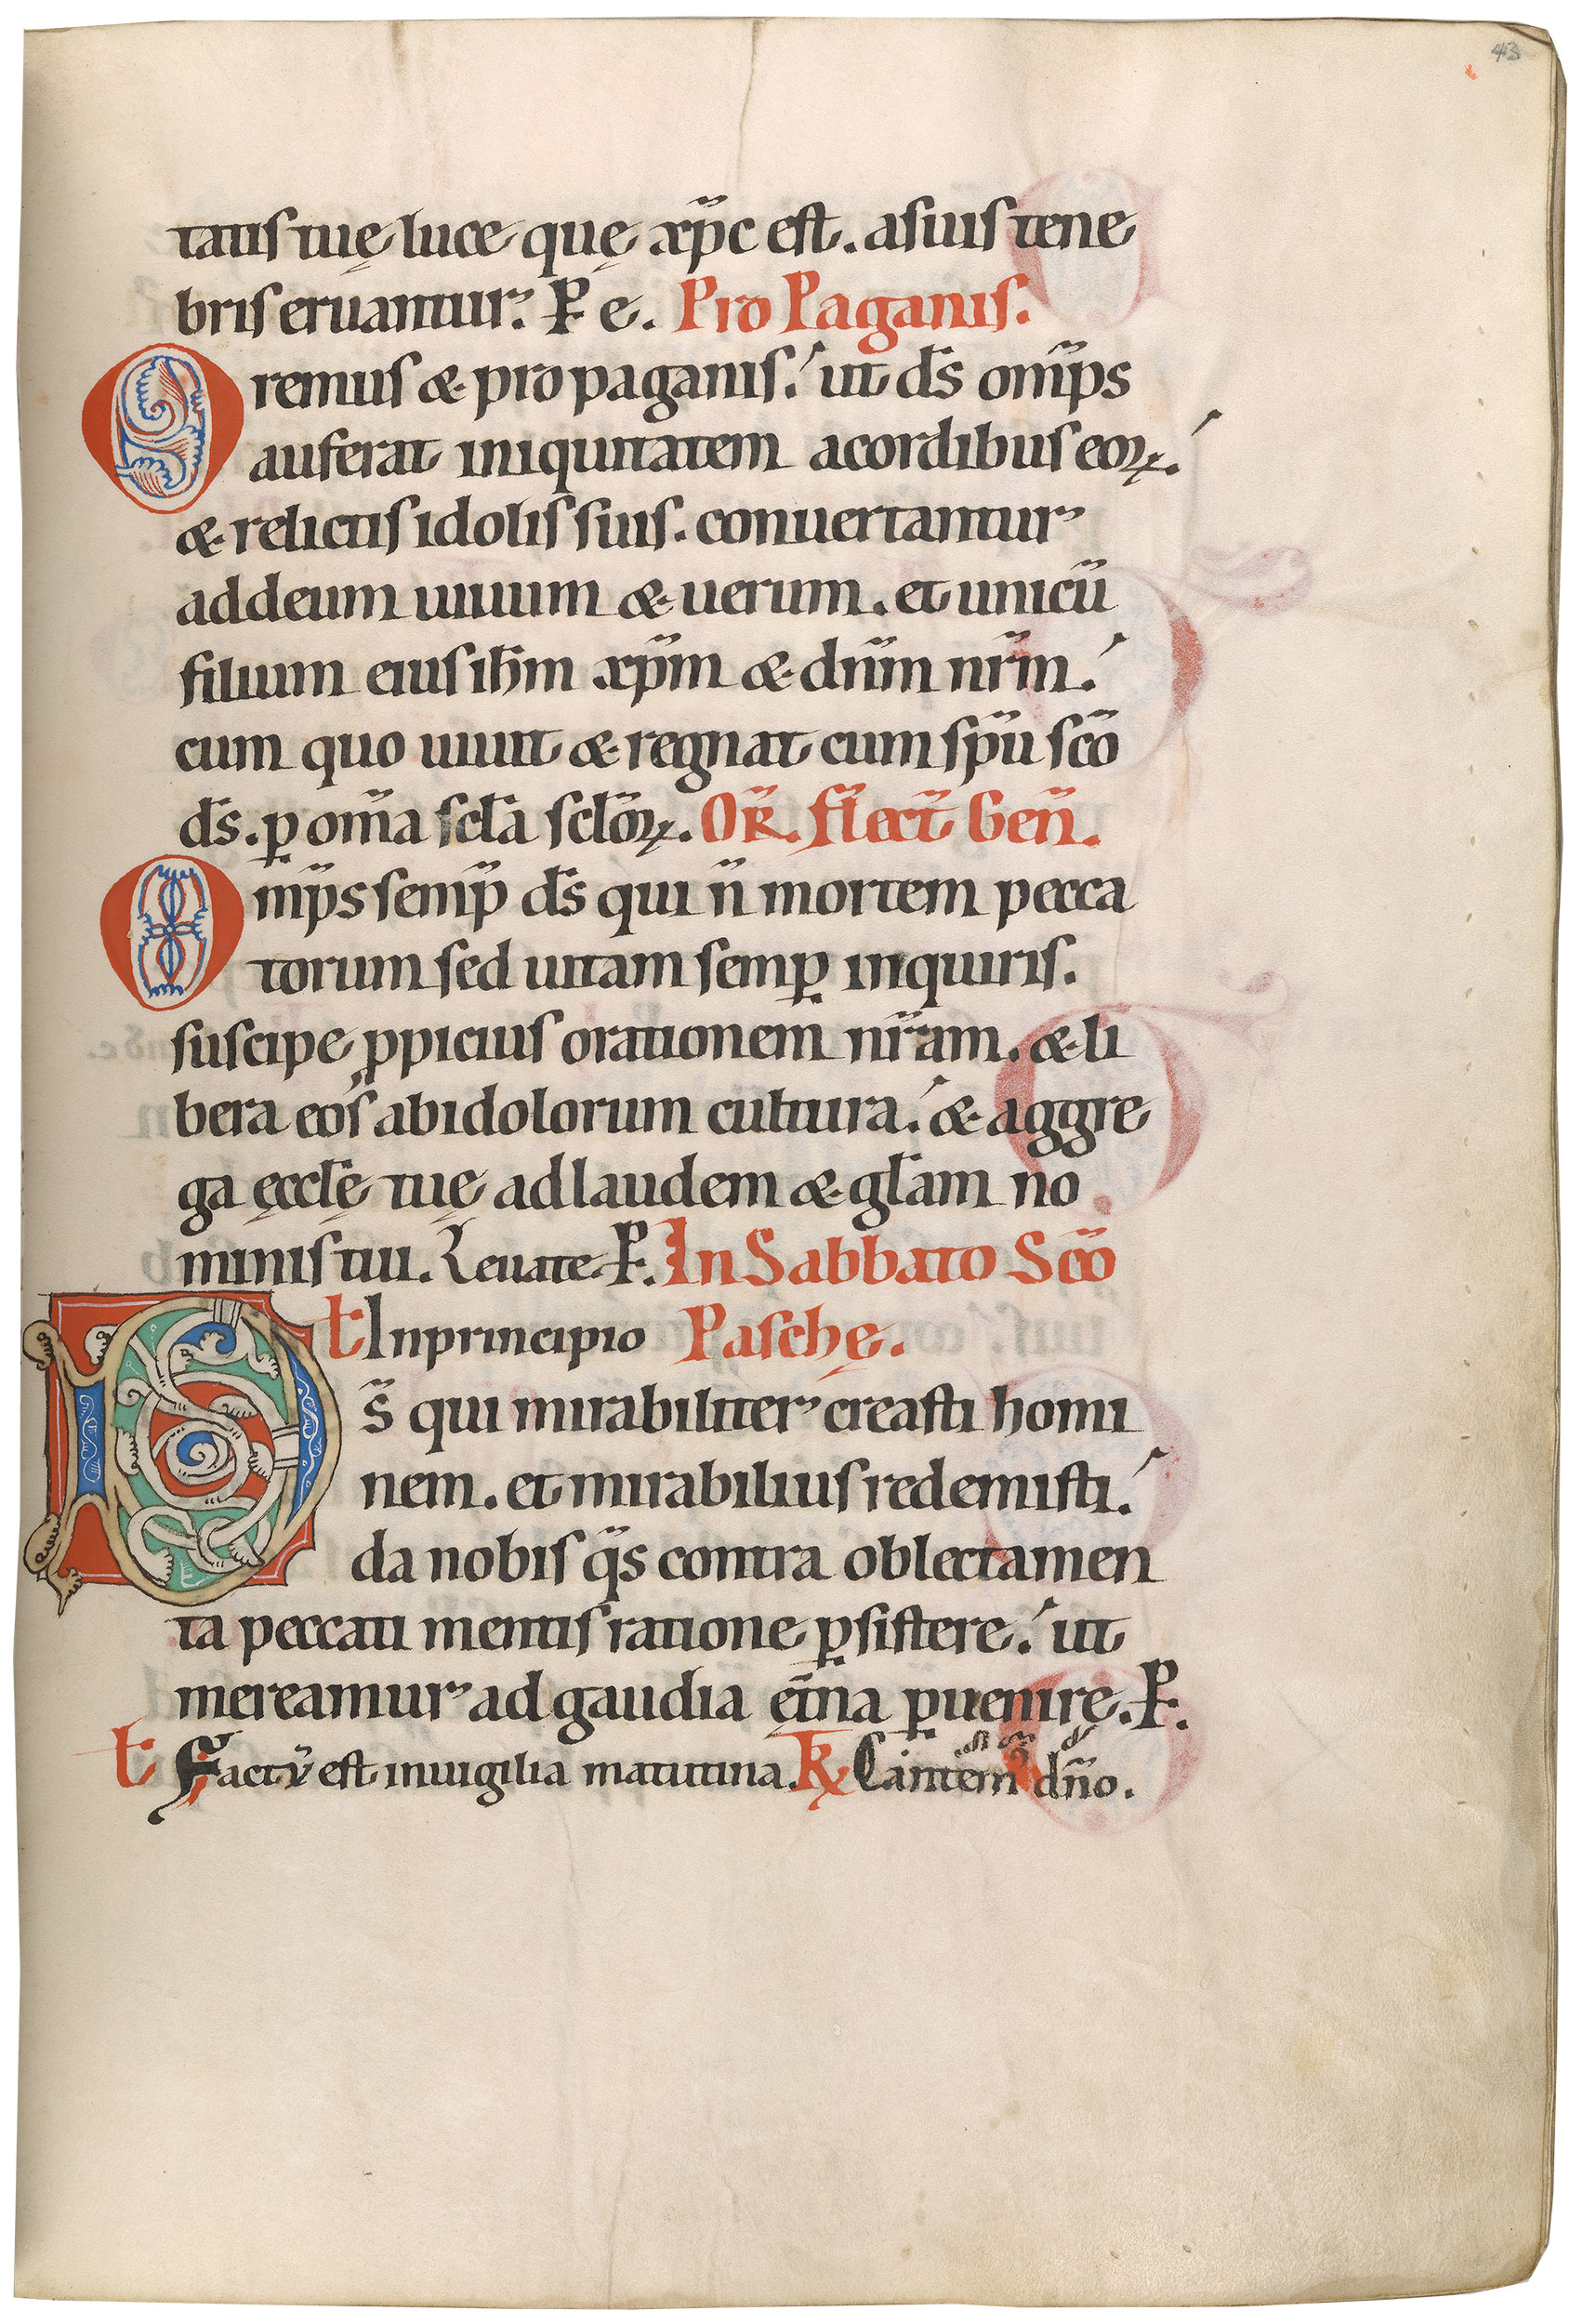 43
tatis tuę luce quę xp̄c est. a suis tene
bris eruantur. P e. Pro Paganis.
Oremus & pro paganis. ut d̄s om̄ps
auferat iniquitatem a cordibus eoꝝ.
& relictis idolis suis. conuertantur
ad deum uiuum & uerum. et unicū
filium eius ih̄m xp̄m & dn̄m nr̄m.
cum quo uiuit & regnat cum sp̄u sc̄o
d̄s. ꝑ om̄a scl̄a scl̄oꝝ. OR̄. flect̄ Gen̄.
Om̄ps semp̄ d̄s qui n̄ mortem pecca
torum sed uitam semꝑ inquiris.
suscipe ꝓpicius orationem nr̄am. & li
bera eos ab idolorum cultura. & aggre
ga ęccl̄ę tuę ad laudem & gl̄am no
minis tui. Leuate. P. In Sabbato Sc̄o
t In principio Paschę.
D̄s qui mirabiliter creasti homi
nem. et mirabilius redemisti.
da nobis q̄s contra oblectamen
ta peccati mentis ratione ꝑsistere. ut
mereamur ad gaudia ęt̄na ꝑuenire. P.
t Factū est in uigilia matutina. ℟ Cantem̄ dn̄o.